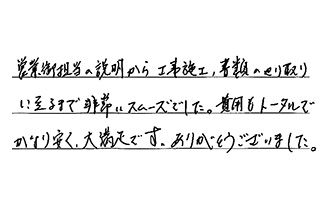 営業御担当の説明から工事施工,書類のやり取り
に至るまで非常にスムーズでした。費用もトータルで
かなり安く、大満足です。ありがとうございました。